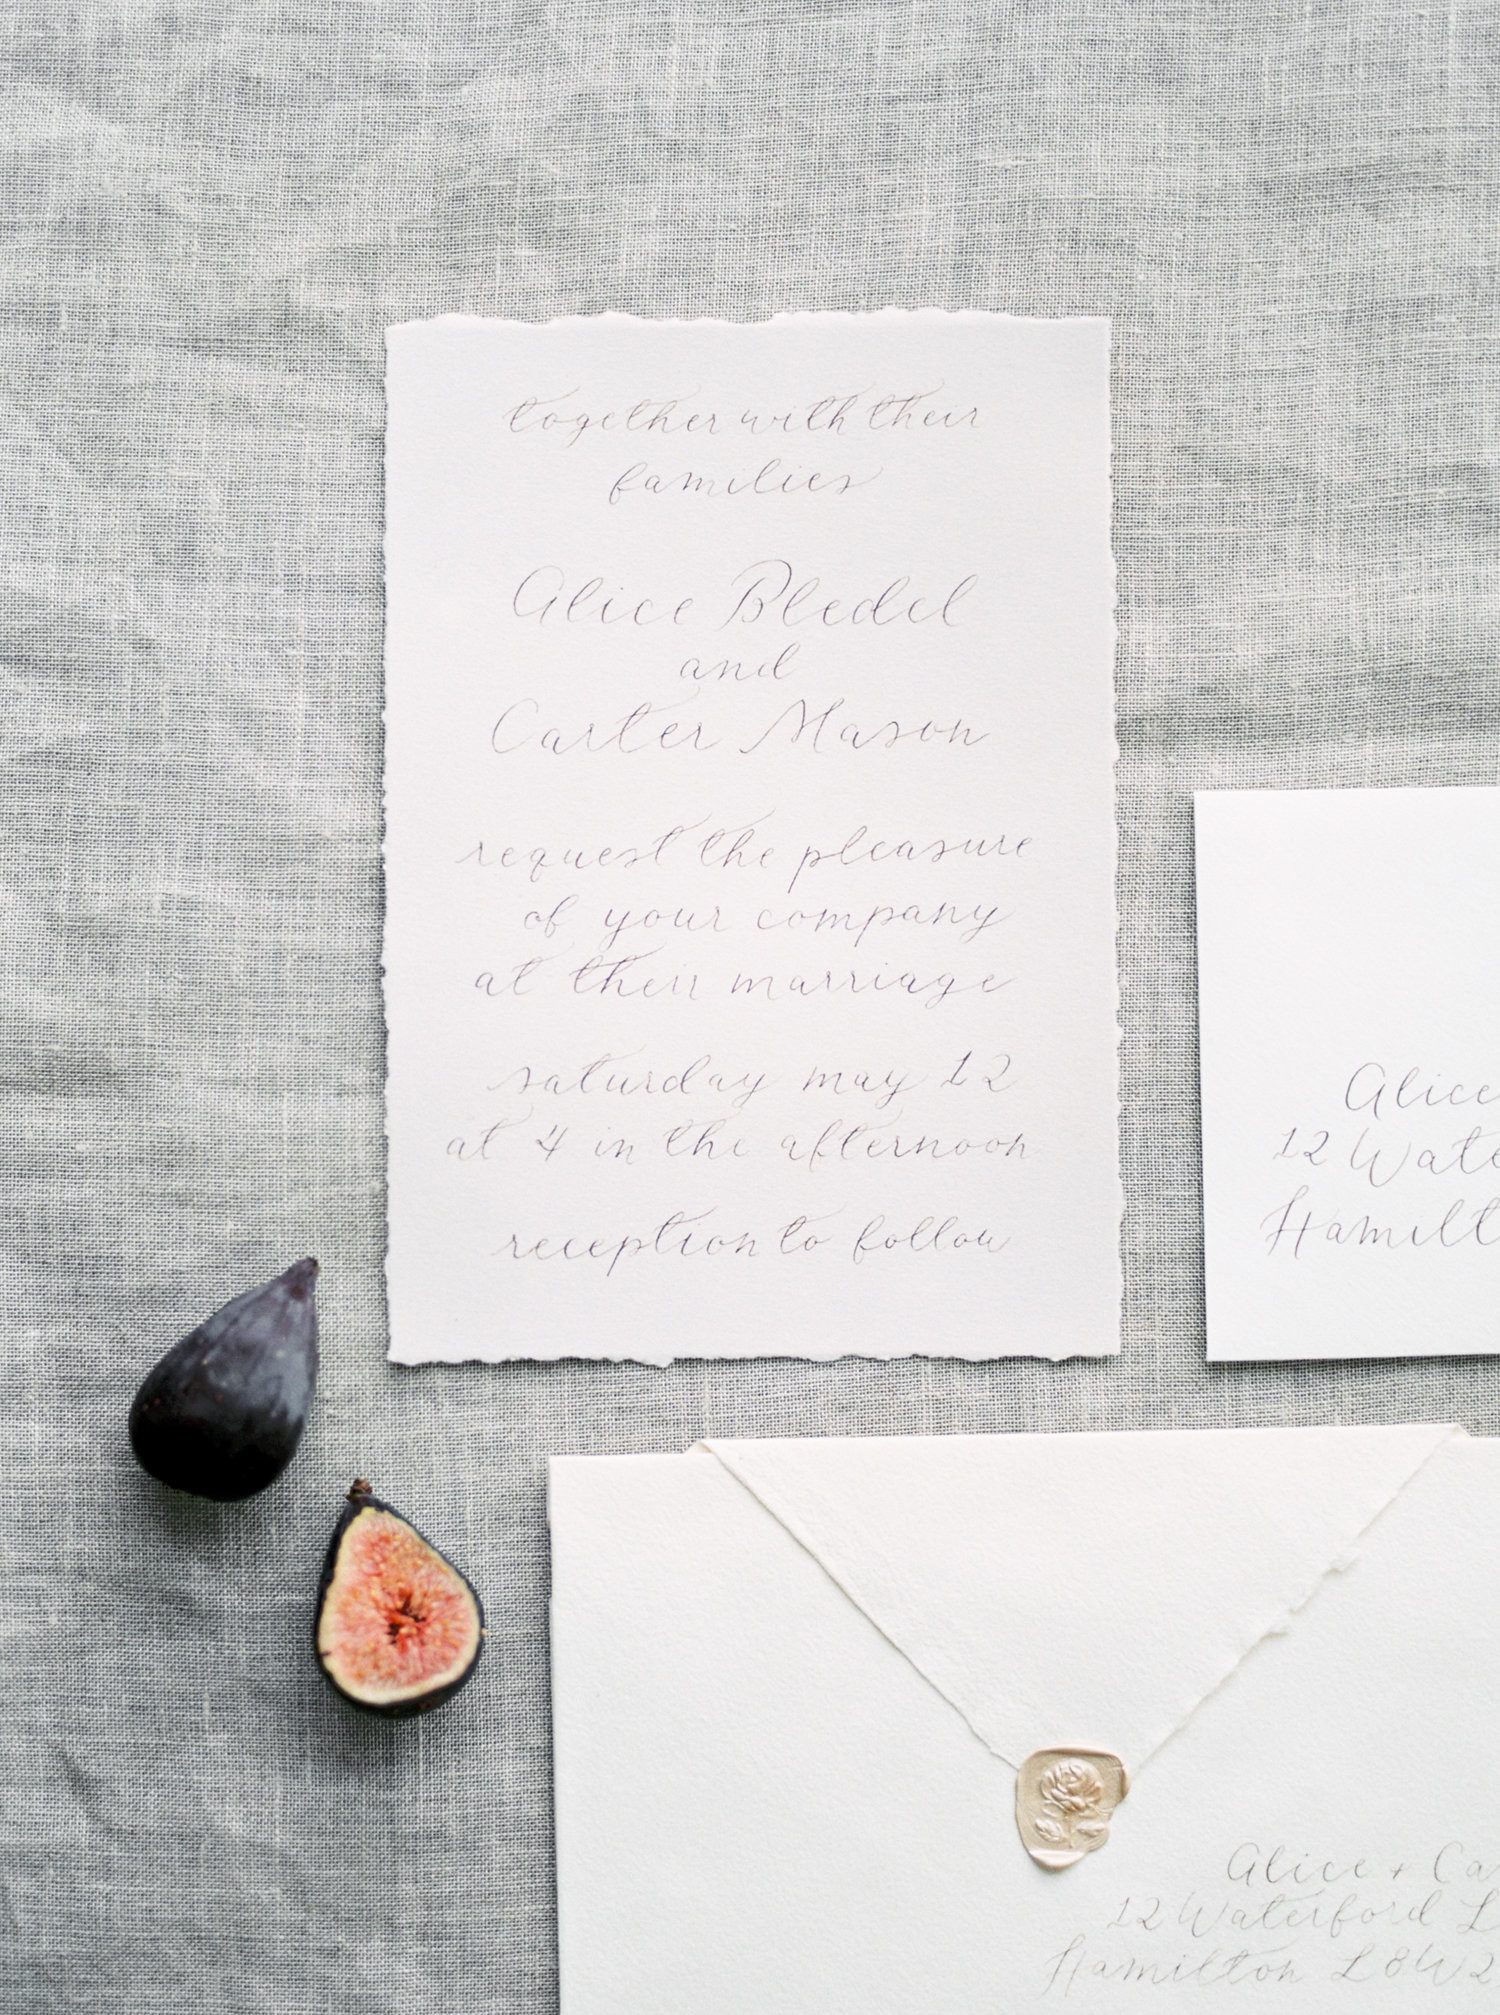 together with their
families
Alice Bledel
and
Carter Mason
request the pleasure
of your company
at their marriage
saturday may 12
at 4 in the afternoon
reception to follow
Alice
12 Wate
Hamilt
Alice + Ca
12 Waterford L
Hamilton L8W2